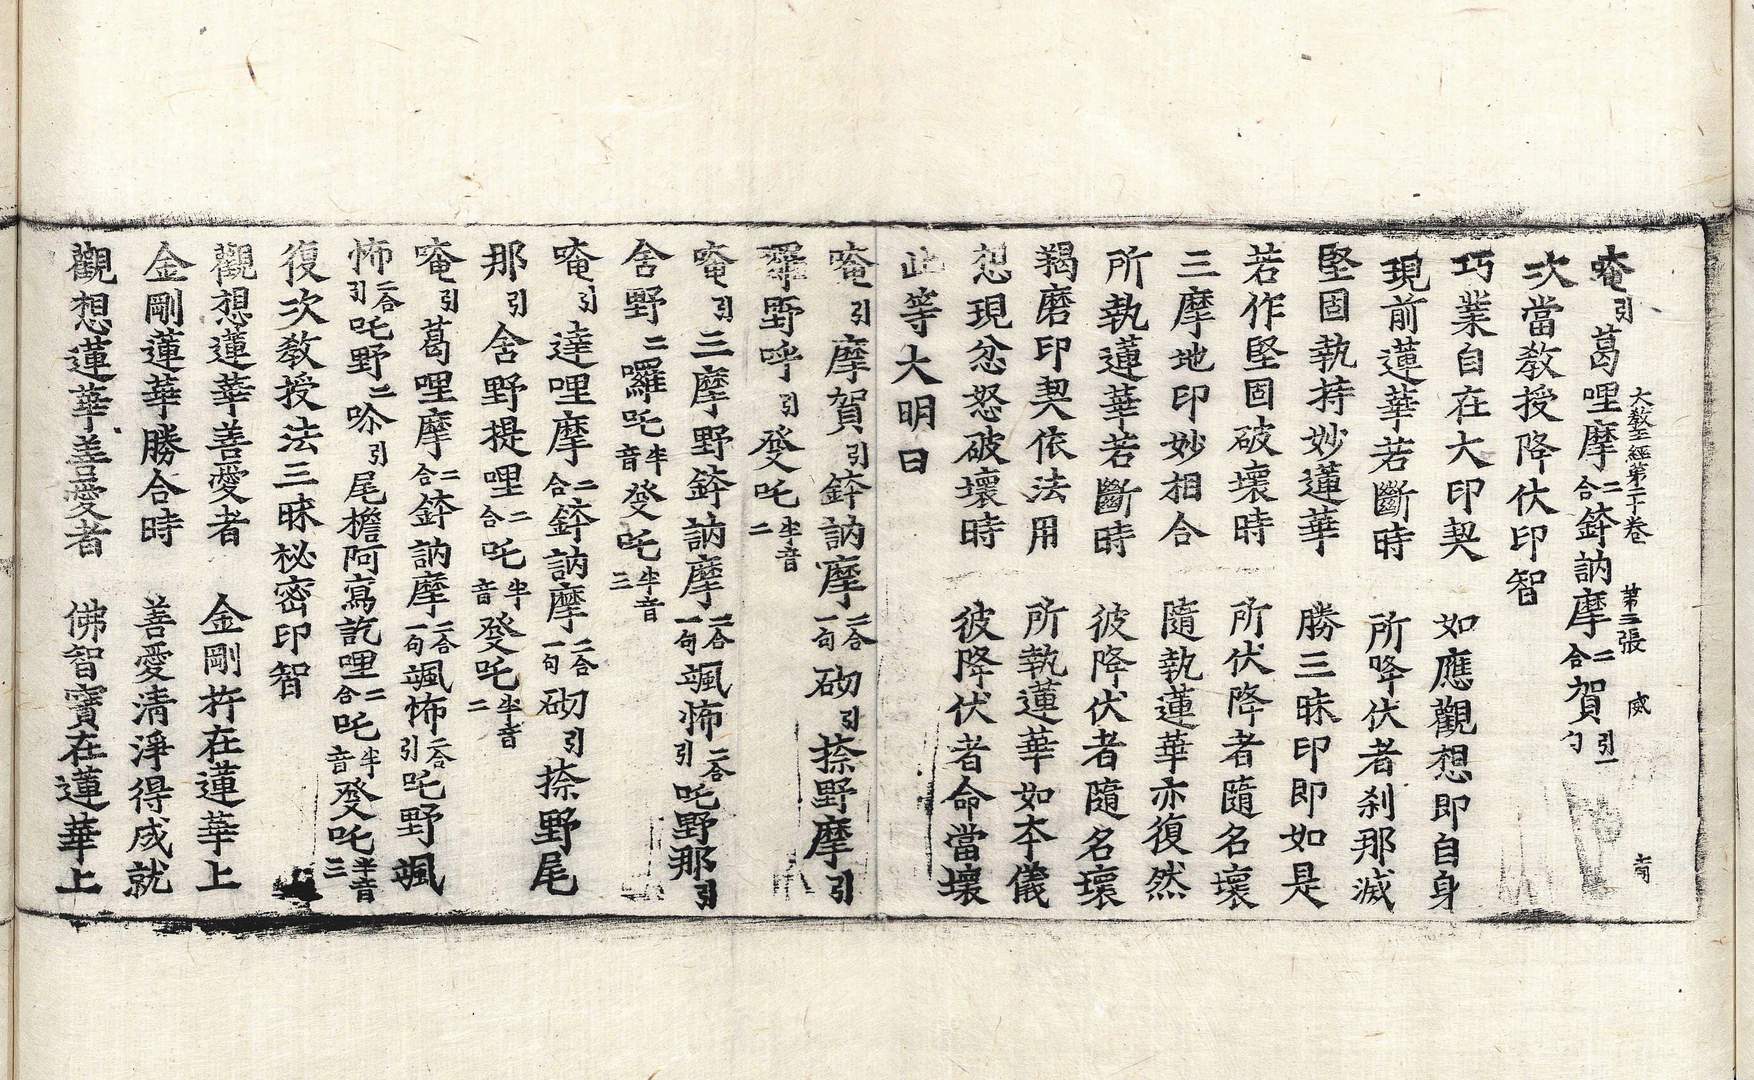 大教王經第二十卷 第三張 威
唵引葛哩摩二合鉢訥摩二合賀引一句
次當教授降伏印智
巧業自在大印契 如應觀想即自身
現前蓮華若斷時 所降伏者刹那滅
堅固執持妙蓮華 勝三昧印即如是
若作堅固破壞時 所伏降者隨名壞
三摩地印妙相合 隨執蓮華亦復然
所執蓮華若斷時 彼降伏者隨名壞
羯磨印契依法用 所執蓮華如本儀
恕現忿怒破壞時 彼降伏者命當壞
此等大明曰
唵引摩賀引鉢訥摩二合一句砌引捺野摩引
囉野呼引癹吒半音二
唵引三摩野鉢訥摩二合一句颯怖二合引吒野那引
舍野二囉吒半音癹吒半音三
唵引達哩摩二合鉢訥摩二合一句砌引捺野尾
那引舍野提哩二合吒半音癹吒半音二
唵引葛哩摩二合鉢訥摩二合一句颯怖二合引吒野颯
怖二合引吒野二吤引尾檐阿寫訖哩二合吒半音癹吒半音三
復次教授法三昧祕密印智
觀想蓮華善愛者 金剛杵在蓮華上
金剛蓮華勝合時 善愛清淨得成就
觀想蓮華善愛者 佛智寶在蓮華上